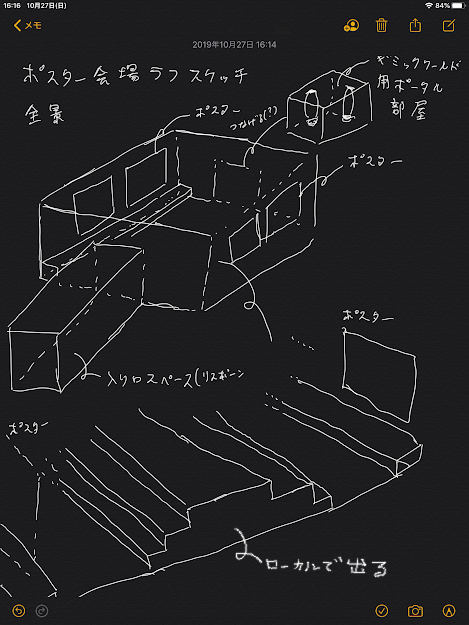 16:16 10月27日(日)
84%
メモ
2019年10月27日 16:14
ポスター会場ラフスケッチ
全景
ポスター
つなげる(?)
ギミックワールド
用ポータル
部屋
ポスター
入り口スペース(リスポーン
ポスター
ポスター
ローカルで出る